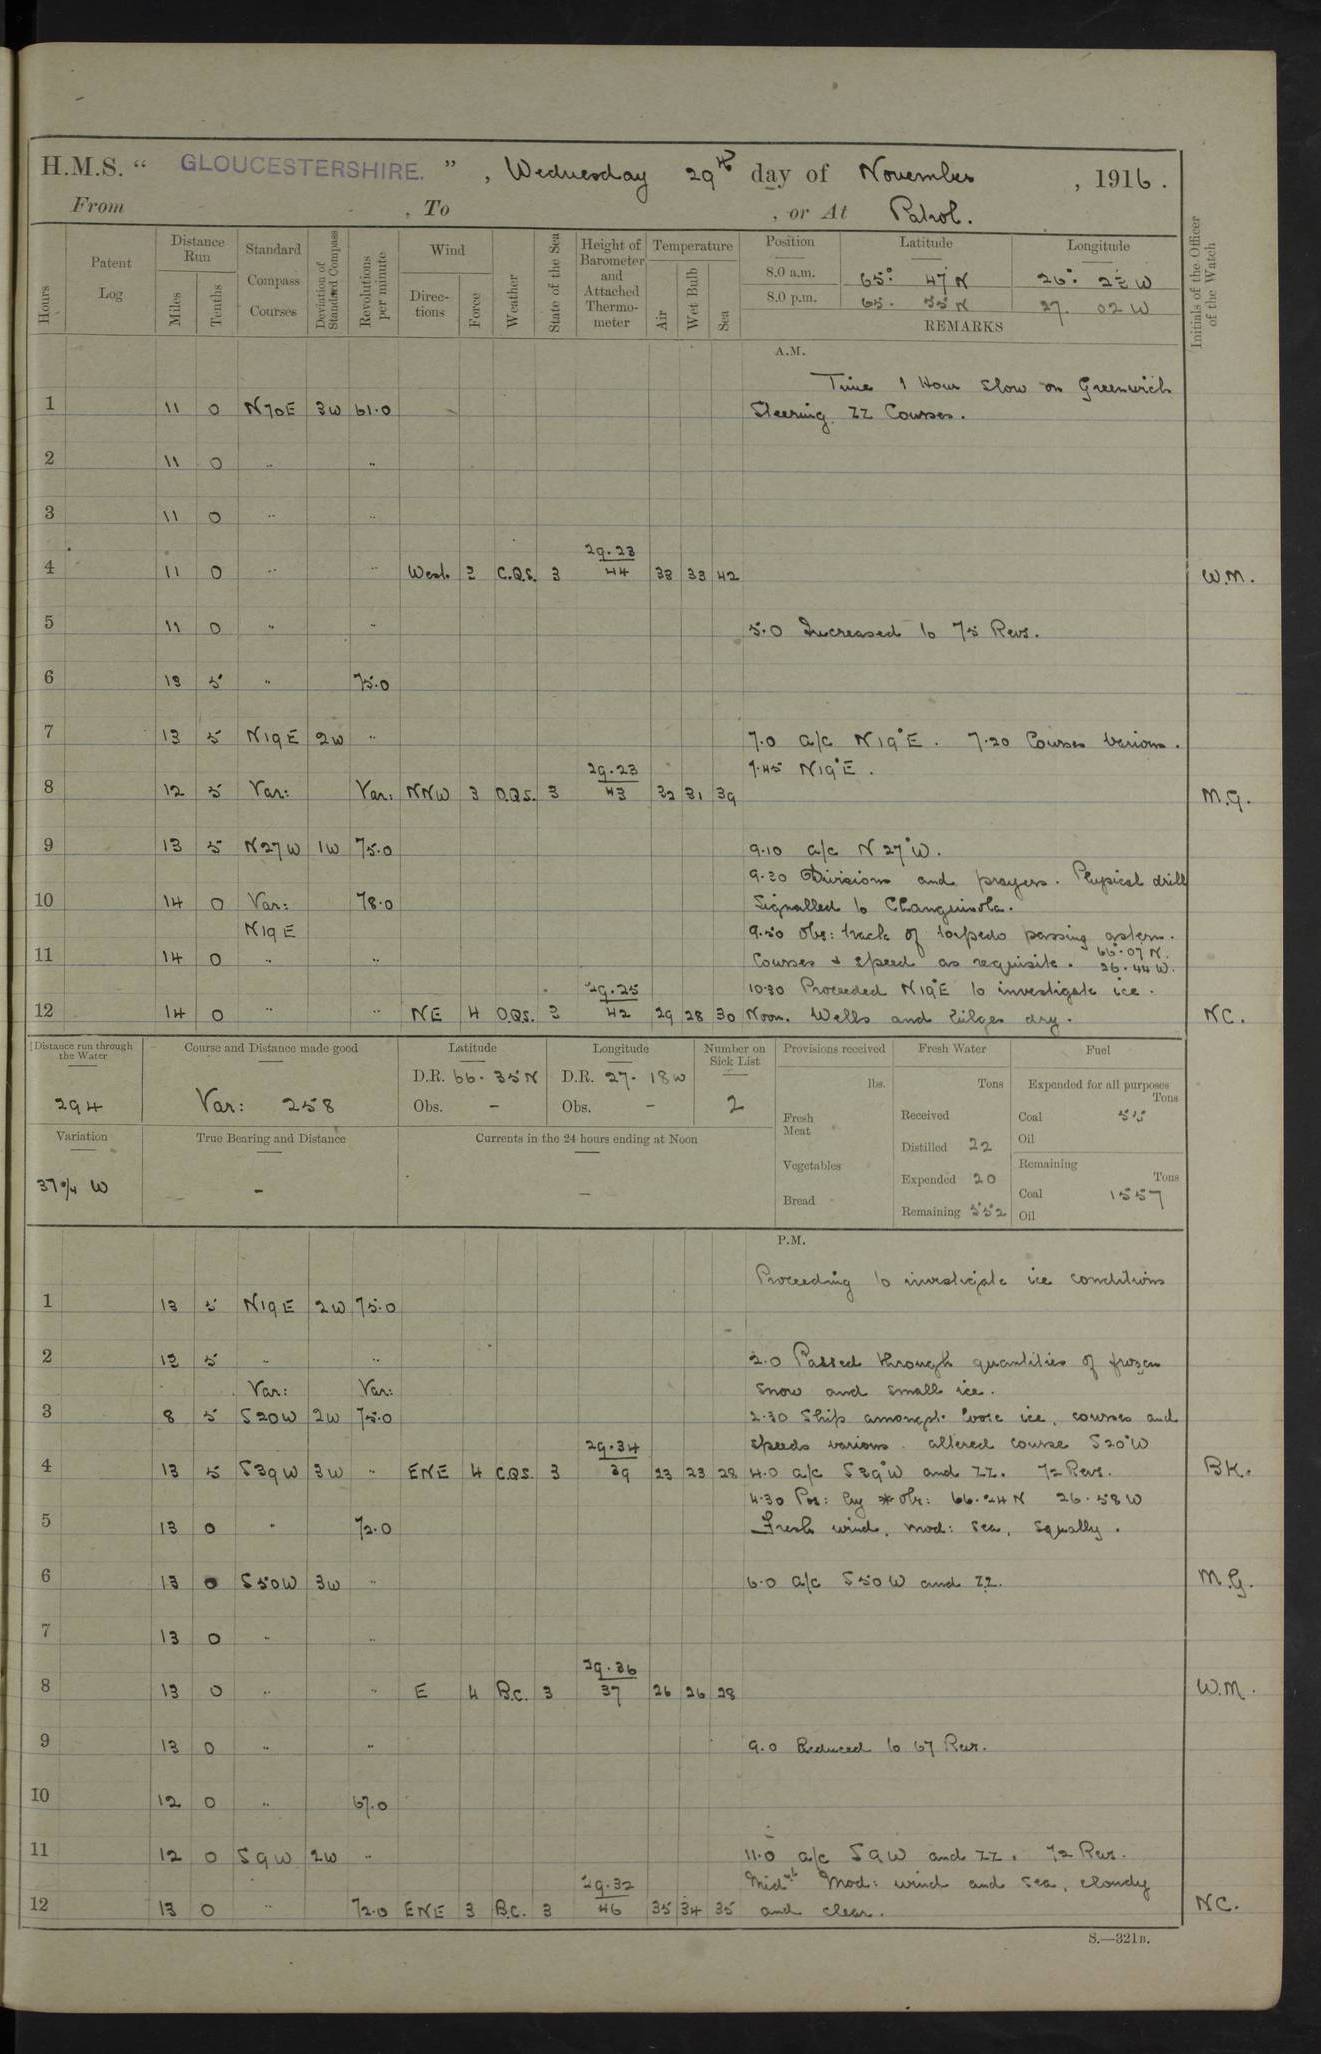 H.M.S. “ GLOUCESTERSHIRE. ” , Wednesday 29th day of November , 1916 .
From , To , or At Patrol.
Hours
Patent Log
Distance Run
Miles
Tenths
Standard Compass Courses
Deviation of Standard Compass
Revolutions per minute
Wind
Direc-tions
Force
Weather
State of the Sea
Height of Barometer and Attached Thermo-meter
Temperature
Air
Wet Bulb
Sea
Position Latitude Longitude
8.0 a.m. 65° 47' N
8.0 p.m. 65. 55 N 27. 02 W
REMARKS
Initials of the Officer of the Watch
A.M.
Time 1 Hour Slow on Greenwich
1 11 0 N70E 3W 61.0 Steering ZZ Courses.
2 11 0 .. ..
3 11 0 .. ..
29.23
4 11 0 .. .. West. C.Q.S. 3 44 33 33 42 W.M.
5 11 0 .. .. 5.0 Increased to 75 Revs.
6 13 5 .. 75.0
7 13 5 N19E 2W .. 7.0 a/c N19°E. 7.20 Courses various.
29.23 7.45 N19°E.
8 12 5 Var: Var: NNW 3 O.Q.S. 3 43 32 31 39 M.G.
9 13 5 N27W 1W 75.0 9.10 a/c N27°W.
9.30 Divisions and prayers. Physical drill
10 14 0 Var: 78.0 Signalled to Changuinola.
N19E 9.50 Obs: track of torpedo passing astern.
11 14 0 .. .. Courses & speed as requisite. 66.07 N. 26.44 W.
29.25 10.30 Proceeded N19°E to investigate ice.
12 14 0 .. .. NE 4 O.Q.S. 3 42 29 28 30 Noon. Wells and bilges dry. N.C.
Distance run through the Water
294
Course and Distance made good
Var: 258
Latitude
D.R. 66. 35 N
Obs. –
Longitude
D.R. 27. 18 W
Obs. –
Number on Sick List
2
Provisions received
lbs.
Fresh Meat
Vegetables
Bread
Fresh Water
Tons
Received
Distilled 22
Expended 20
Remaining 552
Fuel
Expended for all purposes
Tons
Coal 55
Oil
Remaining
Tons
Coal 1557
Oil
Variation
37¾ W
True Bearing and Distance
–
Currents in the 24 hours ending at Noon
–
P.M.
Proceeding to investigate ice conditions
1 13 5 N19E 2W 75.0
2 13 5 .. .. 2.0 Passed through quantities of frozen
Var: Var: snow and small ice.
3 8 5 S20W 2W 75.0 2.30 Ship amongst loose ice, courses and
29.34 speeds various. altered course S20°W
4 13 5 S39W 3W .. ENE 4 C.Q.S. 3 39 23 23 28 4.0 a/c S39°W and ZZ. 72 Revs. B.K.
4.30 Pos: by * Obs: 66.24 N 26.58 W
5 13 0 .. 72.0 Fresh wind, mod: sea, squally.
6 13 0 S50W 3W .. 6.0 a/c S50W and ZZ. M.G.
7 13 0 .. ..
29.36
8 13 0 .. .. E 4 B.C. 3 37 26 26 28 W.M.
9 13 0 .. .. 9.0 Reduced to 67 Revs.
10 12 0 .. 67.0
11 12 0 S9W 2W .. 11.0 a/c S9W and ZZ. 72 Revs.
29.32 Midnt Mod: wind and sea, cloudy
12 13 0 .. 72.0 ENE 3 B.C. 3 46 35 34 35 and clear. N.C.
S.—321B.